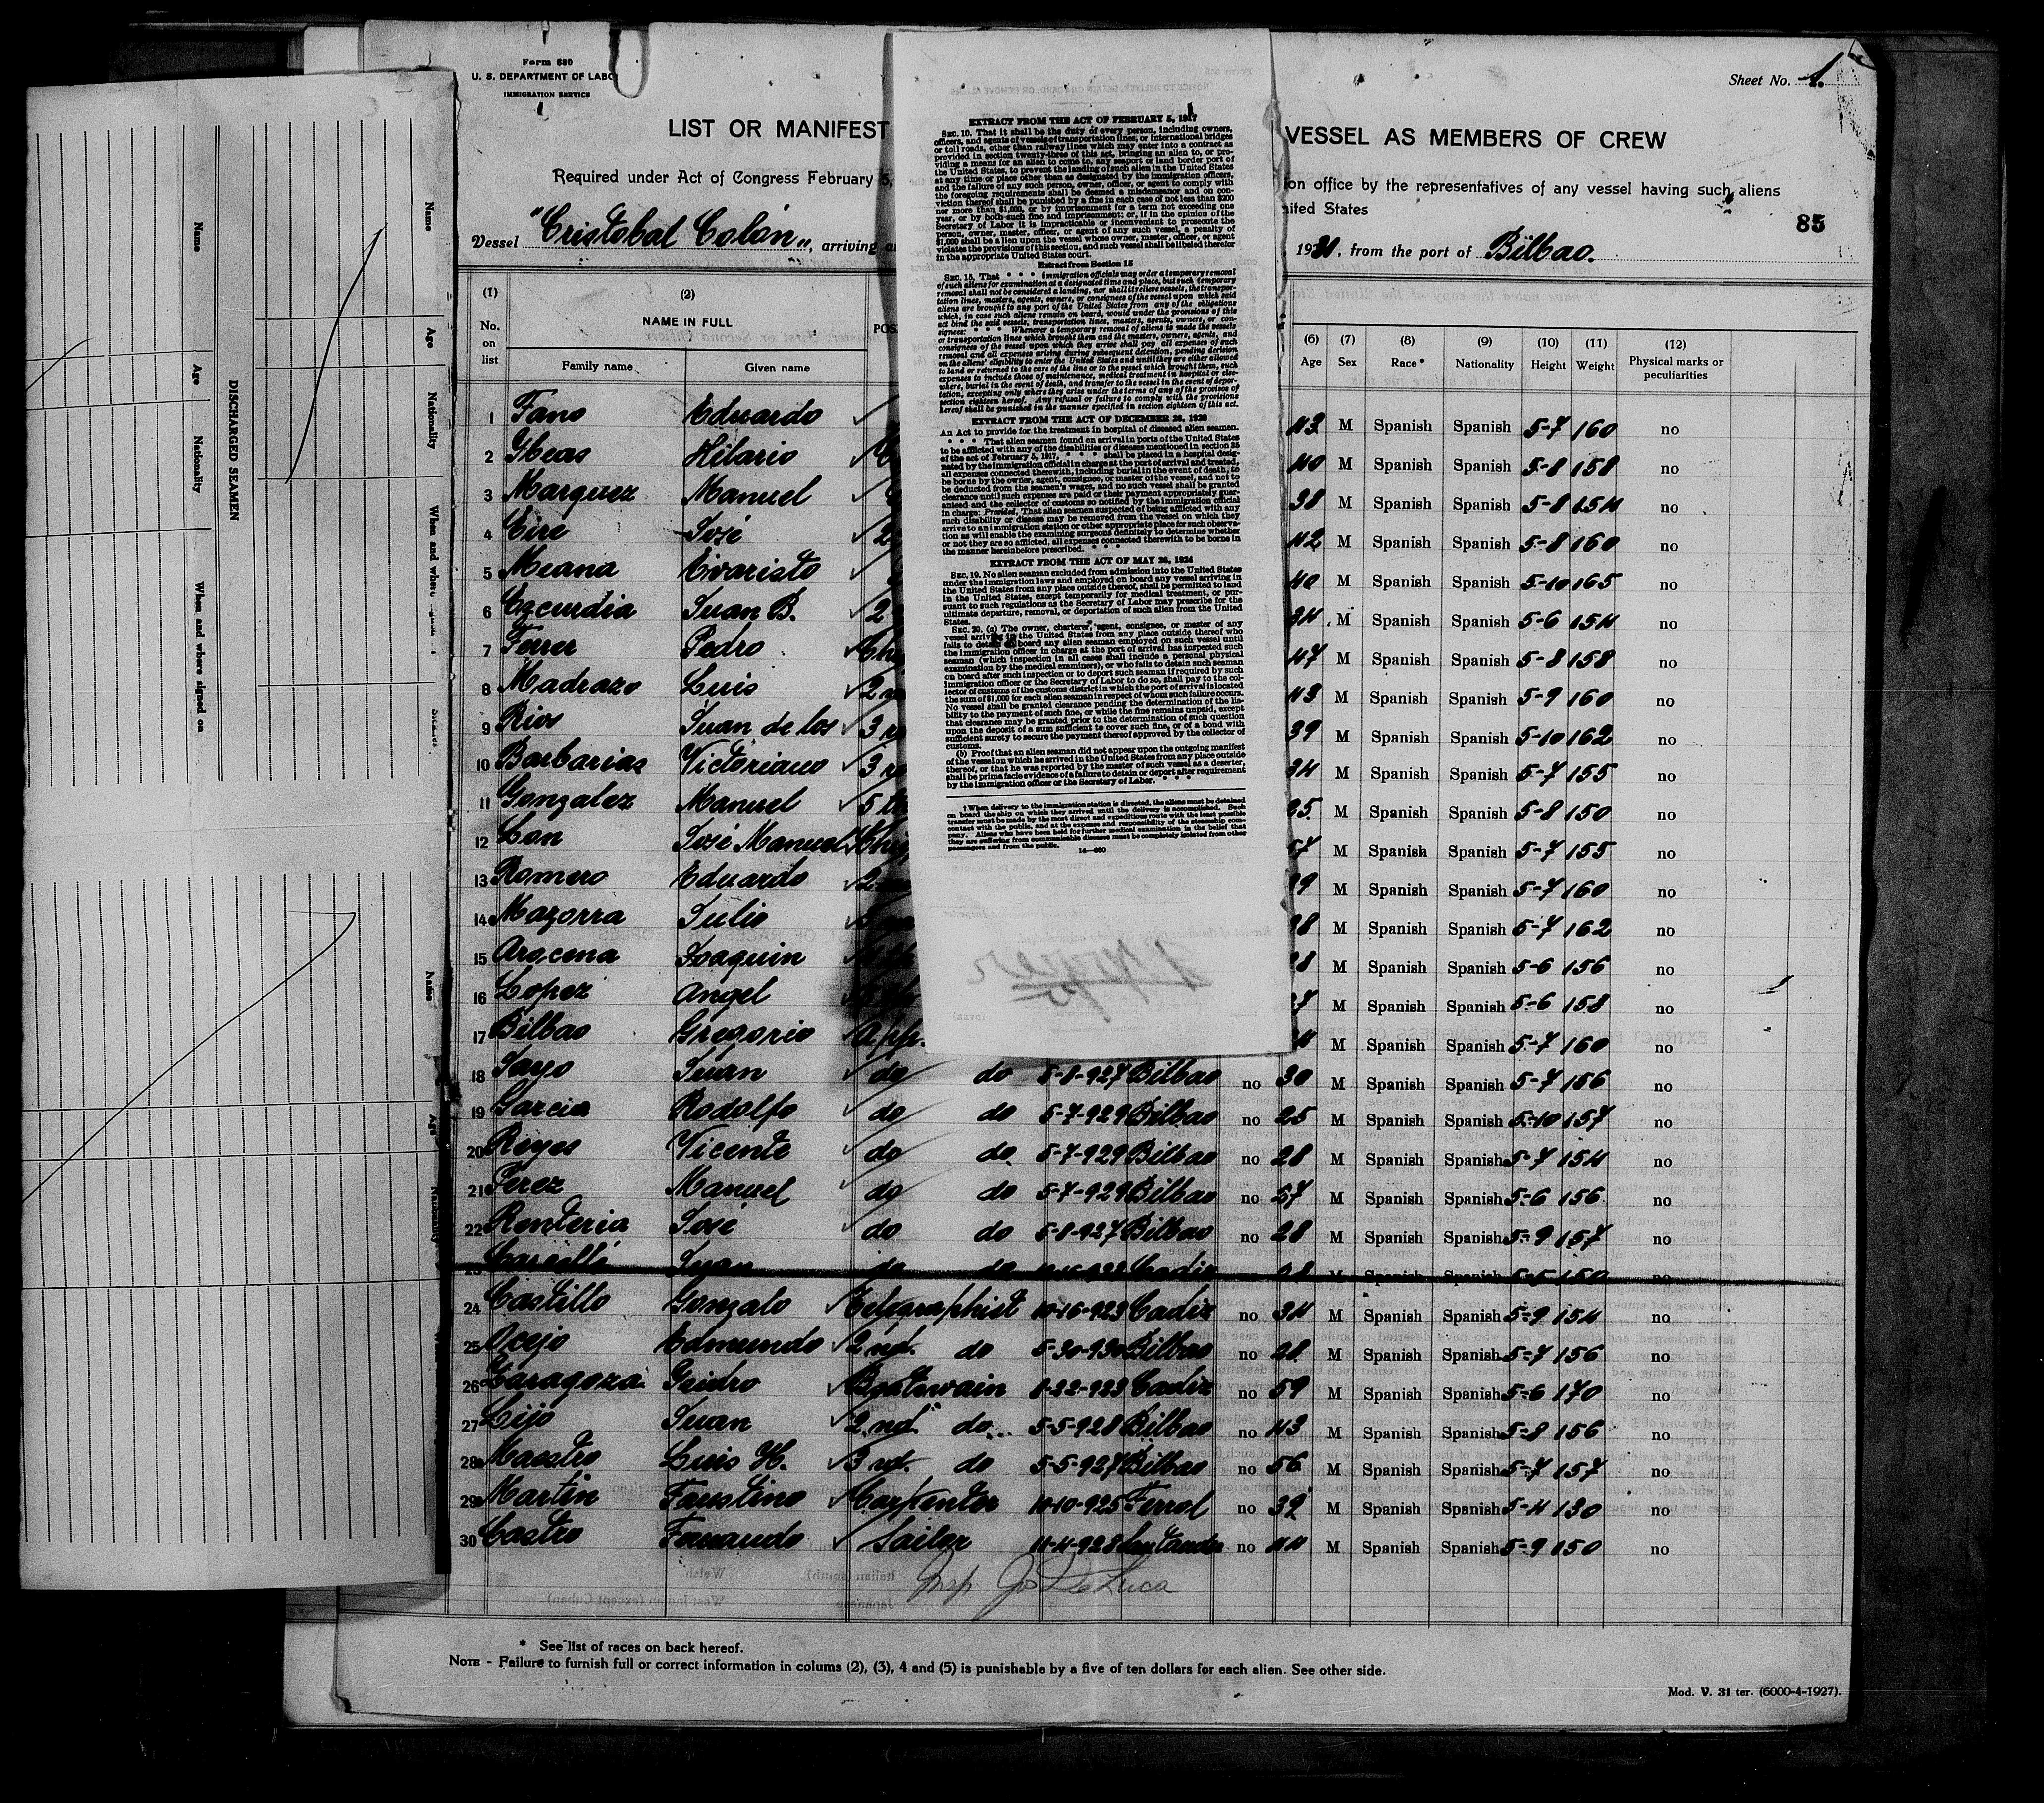 Form 680
U. S. DEPARTMENT OF LABO
IMMIGRATION SERVICE
Sheet No. 1.
LIST OR MANIFEST
VESSEL AS MEMBERS OF CREW
Required under Act of Congress February 5,
on office by the representatives of any vessel having such aliens
nited States
85
Vessel "Cristobal Colón", arriving a
1931, from the port of Bilbao.
(1) (2) (6) (7) (8) (9) (10) (11) (12)
No. on list NAME IN FULL POS Age Sex Race* Nationality Height Weight Physical marks or peculiarities
Family name Given name
1 Fano Eduardo 43 M Spanish Spanish 5-7 160 no
2 Gbeas Hilario 40 M Spanish Spanish 5-8 158 no
3 Marquez Manuel 38 M Spanish Spanish 5-8 154 no
4 Eire José 2 42 M Spanish Spanish 5-8 160 no
5 Meana Evaristo 40 M Spanish Spanish 5-10 165 no
6 Juan B. 2 34 M Spanish Spanish 5-6 154 no
7 Ferrer Pedro Chi 47 M Spanish Spanish 5-8 158 no
8 Madrazo Luis 2 n 43 M Spanish Spanish 5-9 160 no
9 Rios Juan de los 3 r 39 M Spanish Spanish 5-10 162 no
10 Barbarias Victoriano 3 r 34 M Spanish Spanish 5-7 155 no
11 Gonzalez Manuel 5 t 25 M Spanish Spanish 5-8 150 no
12 José Manuel 57 M Spanish Spanish 5-7 155 no
13 Romero Eduardo 2 9 M Spanish Spanish 5-7 160 no
14 Mazorra Julio 8 M Spanish Spanish 5-7 162 no
15 Arocena Joaquin 8 M Spanish Spanish 5-6 156 no
16 Lopez Angel 7 M Spanish Spanish 5-6 158 no
17 Bilbao Gregorio App. 4 M Spanish Spanish 5-7 160 no
18 Sayo Juan do do 5-8-927 Bilbao no 30 M Spanish Spanish 5-7 156 no
19 Garcia Rodolfo do do 5-7-929 Bilbao no 25 M Spanish Spanish 5-10 157 no
20 Reyes Vicente do do 5-7-929 Bilbao no 28 M Spanish Spanish 5-7 154 no
21 Perez Manuel do do 5-7-929 Bilbao no 27 M Spanish Spanish 5-6 156 no
22 Renteria José do do 5-8-927 Bilbao no 28 M Spanish Spanish 5-9 157 no
23 Juan do do Cadiz M Spanish Spanish 150 no
24 Castillo Gonzalo Telegraphist 10-16-923 Cadiz no 34 M Spanish Spanish 5-9 154 no
25 Ocejo Edmundo 2 nd. do 5-30-930 Bilbao no 28 M Spanish Spanish 5-7 156 no
26 Zaragoza Isidro Boatswain 8-22-923 Cadiz no 59 M Spanish Spanish 5-6 170 no
27 Lijo Juan 2 nd. do 5-5-928 Bilbao no 43 M Spanish Spanish 5-8 156 no
28 Maestro Luis H. 3 rd. do 5-5-927 Bilbao no 56 M Spanish Spanish 5-7 157 no
29 Martin Faustino Carpenter 10-10-925 Ferrol no 39 M Spanish Spanish 5-4 130 no
30 Castro Fernando Sailer 11-4-928 Santander no 44 M Spanish Spanish 5-9 150 no
Insp. Jos De Luca
* See list of races on back hereof.
NOTE - Failure to furnish full or correct information in colums (2), (3), 4 and (5) is punishable by a five of ten dollars for each alien. See other side.
Mod. V. 31 ter. (5000-4-1927).
EXTRACT FROM THE ACT OF FEBRUARY 5, 1917
SEC. 10. That it shall be the duty of every person, including owners,
officers, and agents of vessels of transportation lines, or international bridges
or toll roads, other than railway lines which may enter into a contract as
provided in section twenty-three of this act, bringing an alien to, or pro-
viding a means for an alien to come to, any seaport or land border port of
the United States, to prevent the landing of such alien in the United States
at any time or place other than as designated by the immigration officers,
and the failure of any such person, owner, officer, or agent to comply with
the foregoing requirements shall be deemed a misdemeanor and on con-
viction thereof shall be punished by a fine in each case of not less than $200
nor more than $1,000, or by imprisonment for a term not exceeding one
year, or by both such fine and imprisonment; or, if in the opinion of the
Secretary of Labor it is impracticable or inconvenient to prosecute the
person, owner, master, officer, or agent of any such vessel, a penalty of
$1,000 shall be a lien upon the vessel whose owner, master, officer, or agent
violates the provisions of this section, and such vessel shall be libeled therefor
in the appropriate United States court.
Extract from Section 15
SEC. 15. That * * * immigration officials may order a temporary removal
of such aliens for examination at a designated time and place, but such temporary
removal shall not be considered a landing, nor shall it relieve vessels, the transpor-
tation lines, masters, agents, owners, or consignees of the vessel upon which said
aliens are brought to any port of the United States from any of the obligations
which, in case such aliens remain on board, would under the provisions of this
act bind the said vessels, transportation lines, masters, agents, owners, or con-
signees: * * * Whenever a temporary removal of aliens is made the vessels
or transportation lines which brought them and the masters, owners, agents, and
consignees of the vessel upon which they arrive shall pay all expenses of such
removal and all expenses arising during subsequent detention, pending decision
on the aliens' eligibility to enter the United States and until they are either allowed
to land or returned to the care of the line or to the vessel which brought them, such
expenses to include those of maintenance, medical treatment in hospital or else-
where, burial in the event of death, and transfer to the vessel in the event of depor-
tation, excepting only where they arise under the terms of any of the provisos of
section eighteen hereof. Any refusal or failure to comply with the provisions
hereof shall be punished in the manner specified in section eighteen of this act.
EXTRACT FROM THE ACT OF DECEMBER 26, 1920
An Act to provide for the treatment in hospital of diseased alien seamen.
* * * * That alien seamen found on arrival in ports of the United States
to be afflicted with any of the disabilities or diseases mentioned in section 35
of the act of February 5, 1917, * * * * shall be placed in a hospital desig-
nated by the immigration official in charge at the port of arrival and treated,
all expenses connected therewith, including burial in the event of death, to
be borne by the owner, agent, consignee, or master of the vessel, and not to
be deducted from the seamen's wages, and no such vessel shall be granted
clearance until such expenses are paid or their payment appropriately guar-
anteed and the collector of customs so notified by the immigration official
in charge: Provided, That alien seamen suspected of being afflicted with any
such disability or disease may be removed from the vessel on which they
arrive to an immigration station or other appropriate place for such observa-
tion as will enable the examining surgeons definitely to determine whether
or not they are so afflicted, all expenses connected therewith to be borne in
the manner hereinbefore prescribed. * * *
EXTRACT FROM THE ACT OF MAY 26, 1924
SEC. 19. No alien seaman excluded from admission into the United States
under the immigration laws and employed on board any vessel arriving in
the United States from any place outside thereof, shall be permitted to land
in the United States, except temporarily for medical treatment, or pur-
suant to such regulations as the Secretary of Labor may prescribe for the
ultimate departure, removal, or deportation of such alien from the United
States.
SEC. 20. (a) The owner, charterer, agent, consignee, or master of any
vessel arriving in the United States from any place outside thereof who
fails to detain on board any alien seaman employed on such vessel until
the immigration officer in charge at the port of arrival has inspected such
seaman (which inspection in all cases shall include a personal physical
examination by the medical examiners), or who fails to detain such seaman
on board after such inspection or to deport such seaman if required by such
immigration officer or the Secretary of Labor to do so, shall pay to the col-
lector of customs of the customs district in which the port of arrival is located
the sum of $1,000 for each alien seaman in respect of whom such failure occurs.
No vessel shall be granted clearance pending the determination of the lia-
bility to the payment of such fine, or while the fine remains unpaid, except
that clearance may be granted prior to the determination of such question
upon the deposit of a sum sufficient to cover such fine, or of a bond with
sufficient surety to secure the payment thereof approved by the collector of
customs.
(b) Proof that an alien seaman did not appear upon the outgoing manifest
of the vessel on which he arrived in the United States from any place outside
thereof, or that he was reported by the master of such vessel as a deserter,
shall be prima facie evidence of a failure to detain or deport after requirement
by the immigration officer or the Secretary of Labor. * * *
† When delivery to the immigration station is directed, the aliens must be detained
on board the ship on which they arrived until the delivery is accomplished. Such
transfer must be made by the most direct and expeditious route with the least possible
contact with the public, and at the expense and responsibility of the steamship com-
pany. Aliens who have been held for further medical examination in the belief that
they are suffering from communicable diseases must be completely isolated from other
passengers and from the public.
14—680
DISCHARGED SEAMEN
Name Age Nationality When and where signed on
Name Age Nationality When and where
Name Age Nationality